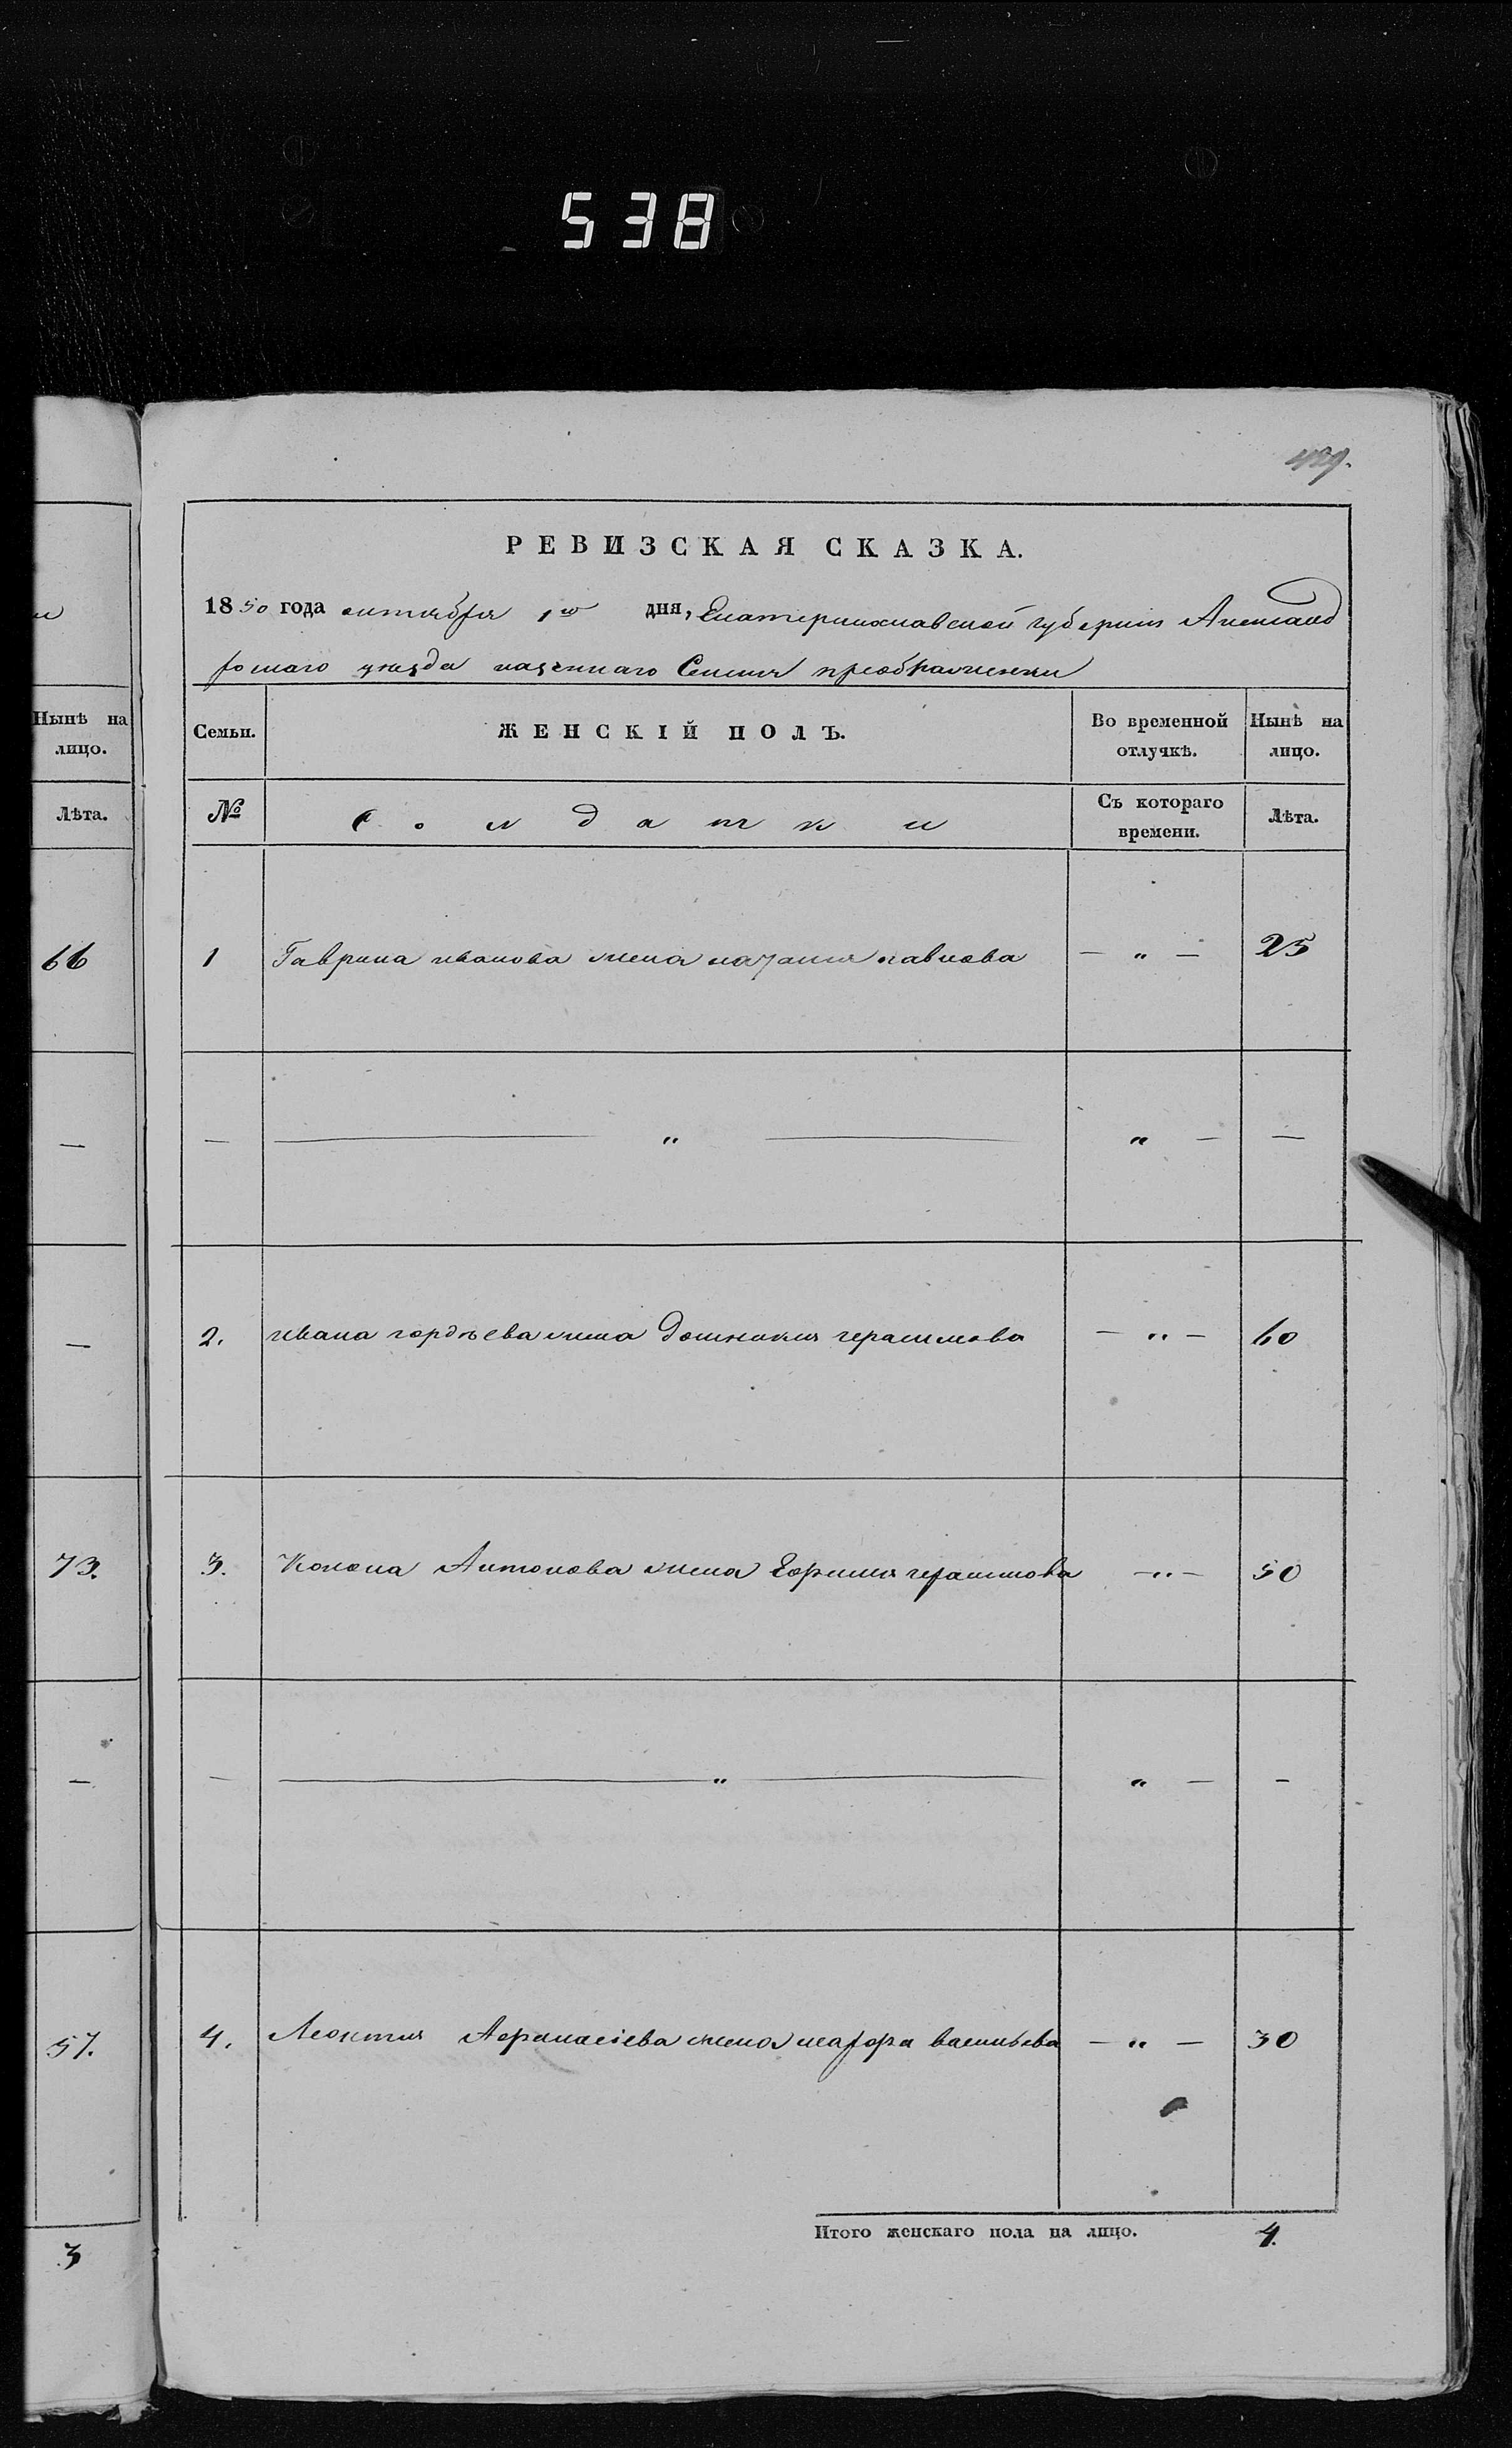 538
489.
РЕВИЗСКАЯ СКАЗКА.
1850 года октября 1го дня, Екатеринославской губернии Александ
ровскаго уезда казеннаго Селения преображенки
Нынѣ на лицо.
Лѣта.
66
—
—
73.
—
57.
3
Семьи. ЖЕНСКІЙ ПОЛЪ. Во временной отлучкѣ. Нынѣ на лицо.
№ Солдатки Съ котораго времени. Лѣта.
1 Гаврила иванова жена наталия павлова — „ — 25
— — „ — „ — —
2. ивана гордѣева жена домникия герасимова — „ — 60
3. Конона Антонова жена Ефимия герасимова — „ — 50
— — „ — „ — -
4. Леонтия Афанасіева жена марфа васильева — „ — 30
Итого женскаго пола на лицо. 4.